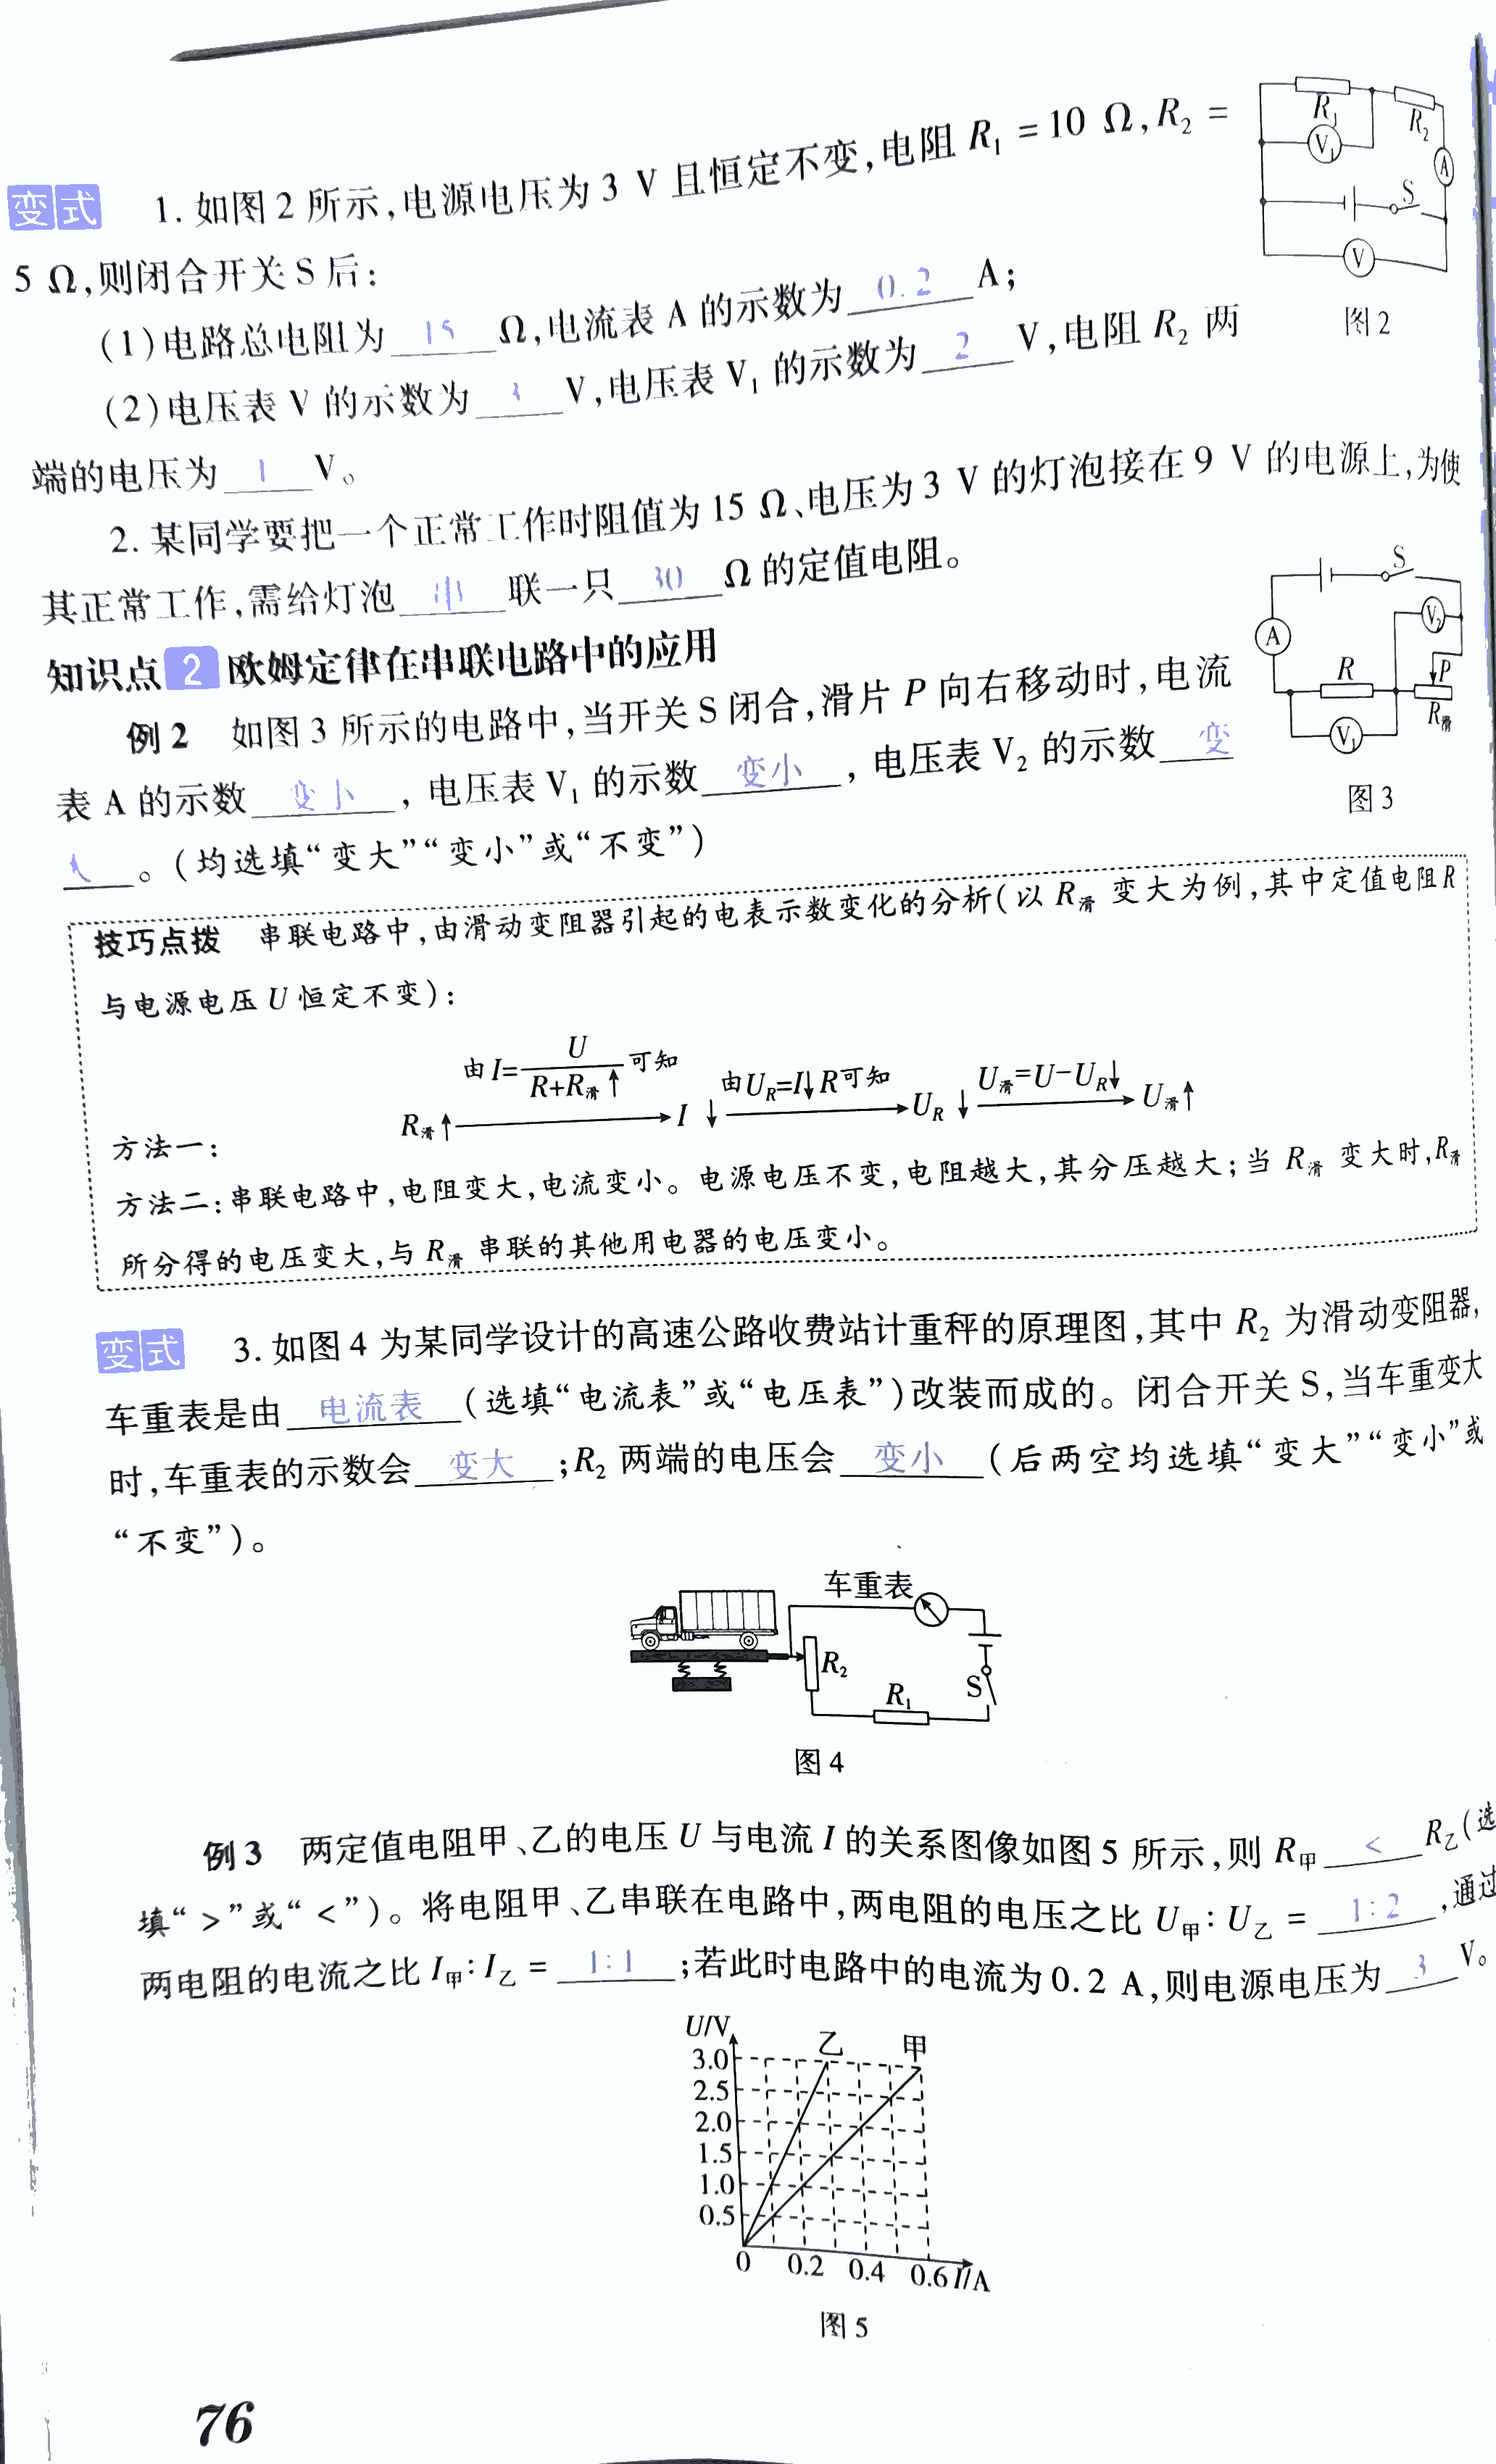 变式 1. 如图 2 所示,电源电压为 3 V 且恒定不变,电阻 R₁ = 10 Ω, R₂ =
5 Ω,则闭合开关 S 后:
(1)电路总电阻为 15 Ω,电流表 A 的示数为 0.2 A;
(2)电压表 V 的示数为 3 V,电压表 V₁ 的示数为 2 V,电阻 R₂ 两
端的电压为 1 V。
R₁ R₂ V₁ A S V
图 2
2. 某同学要把一个正常工作时阻值为 15 Ω、电压为 3 V 的灯泡接在 9 V 的电源上,为使
其正常工作,需给灯泡 串 联一只 30 Ω 的定值电阻。
知识点 2 欧姆定律在串联电路中的应用
例 2 如图 3 所示的电路中,当开关 S 闭合,滑片 P 向右移动时,电流
表 A 的示数 变小 ,电压表 V₁ 的示数 变小 ,电压表 V₂ 的示数 变
大 。(均选填“变大”“变小”或“不变”)
S A V₂ R P R滑 V₁
图 3
技巧点拨 串联电路中,由滑动变阻器引起的电表示数变化的分析(以 R滑 变大为例,其中定值电阻 R
与电源电压 U 恒定不变):
方法一: R滑↑ 由I=U/(R+R滑↑)可知 → I↓ 由U_R=I↓R可知 → U_R↓ U滑=U-U_R↓ → U滑↑
方法二:串联电路中,电阻变大,电流变小。电源电压不变,电阻越大,其分压越大;当 R滑 变大时,R滑
所分得的电压变大,与 R滑 串联的其他用电器的电压变小。
变式 3. 如图 4 为某同学设计的高速公路收费站计重秤的原理图,其中 R₂ 为滑动变阻器,
车重表是由 电流表 (选填“电流表”或“电压表”)改装而成的。闭合开关 S,当车重变大
时,车重表的示数会 变大 ;R₂ 两端的电压会 变小 (后两空均选填“变大”“变小”或
“不变”)。
车重表
R₂ R₁ S
图 4
例 3 两定值电阻甲、乙的电压 U 与电流 I 的关系图像如图 5 所示,则 R甲 < R乙(选
填“>”或“<”)。将电阻甲、乙串联在电路中,两电阻的电压之比 U甲∶U乙 = 1∶2 ,通过
两电阻的电流之比 I甲∶I乙 = 1∶1 ;若此时电路中的电流为 0.2 A,则电源电压为 3 V。
U/V 乙 甲
3.0
2.5
2.0
1.5
1.0
0.5
0 0.2 0.4 0.6 I/A
图 5
76